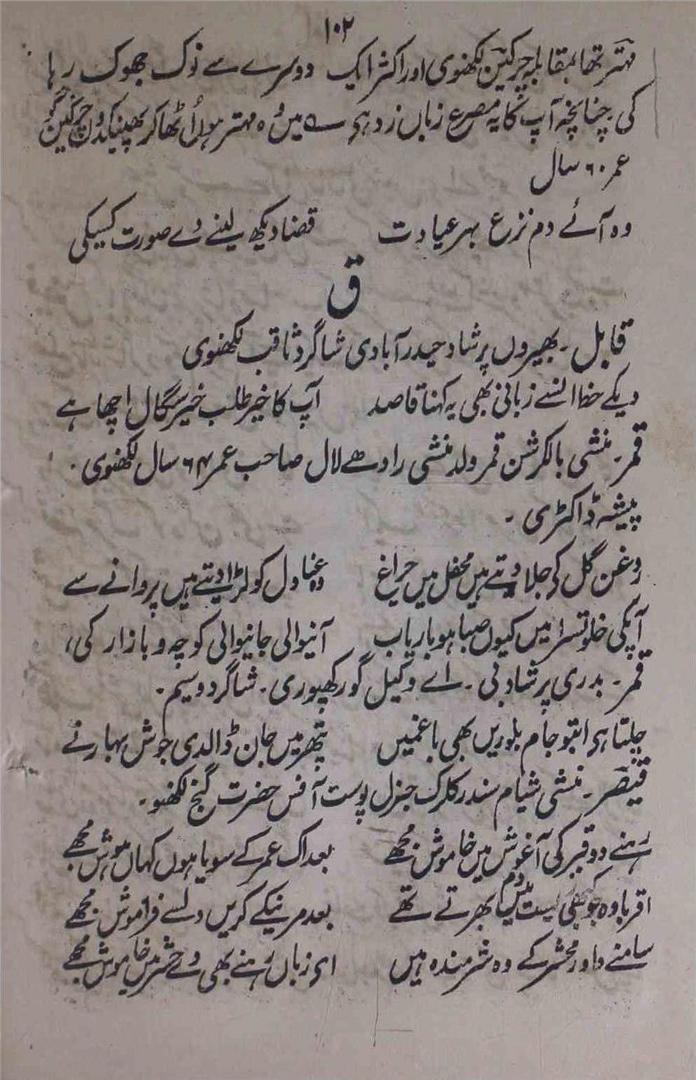 ۱۰۲
مہتر تھا بمقابلہ چرکین لکھنوی اور اکثر ایک دوسرے سے نوک جھوک رہا
کی چنانچہ آپ کا یہ مصرع زباں زد ہے ؎ میں وہ مہتر ہوں اُٹھا کر پھینکدوں چرکین کو
عمر ۶۰ سال
وہ آئے دم نزع بہر عیادت قضا دیکھ لینے دے صورت کسیکی
ق
قابل۔ بھیروں پرشاد حیدرآبادی شاگرد ثاقب لکھنوی
دیکے خط انسے زبانی بھی یہ کہنا قاصد آپ کا خیر طلب خیر سگال اچھا ہے
قمر۔ منشی بالکرشن قمر ولد منشی رادھے لال صاحب عمر ۶۴ سال لکھنوی۔
پیشہ ڈاکٹری۔
روغن گل کی جلا دیتے ہیں محفل میں چراغ وہ عنادل کو لڑا دیتے ہیں پروانے سے
آپکی خلوتسرا میں کیوں صبا ہو باریاب آنیوالی جانیوالی کوچہ و بازار کی
قمر۔ بدری پرشاد بی۔ اے وکیل گورکھپوری۔ شاگرد وسیم۔
چلتا ہے ابتو جام بلوریں بھی باغمیں پتھر میں جان ڈالدی جوش بہار نے
قیصر۔ منشی شیام سندر کلرک جنرل پوسٹ آفس حضرت گنج لکھنو۔
رہنے دو قبر کی آغوش میں خاموش مجھے بعد اک عمر کے سویا ہوں کہاں ہوش مجھے
اقربا وہ جو کبھی زیست میں دم بھرتے تھے بعد مرنیکے کریں دلسے فراموش مجھے
سامنے داور محشر کے وہ شرمندہ ہیں اے زباں رہنے بھی دے حشر میں خاموش مجھے